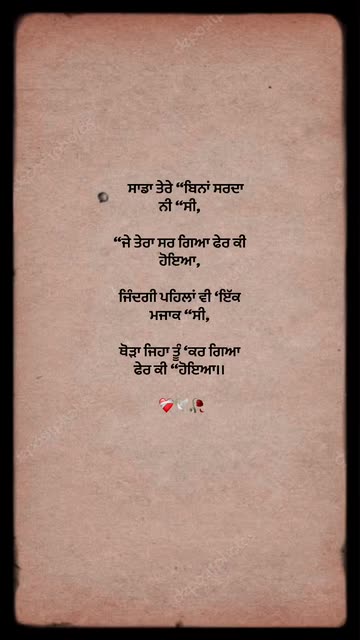 ਸਾਡਾ ਤੇਰੇ “ਬਿਨਾਂ ਸਰਦਾ
ਨੀ “ਸੀ,
“ਜੇ ਤੇਰਾ ਸਰ ਗਿਆ ਫੇਰ ਕੀ
ਹੋਇਆ,
ਜਿੰਦਗੀ ਪਹਿਲਾਂ ਵੀ ‘ਇੱਕ
ਮਜਾਕ “ਸੀ,
ਥੋੜਾ ਜਿਹਾ ਤੂੰ ‘ਕਰ ਗਿਆ
ਫੇਰ ਕੀ “ਹੋਇਆ।।
❤️‍🩹🕊️🥀